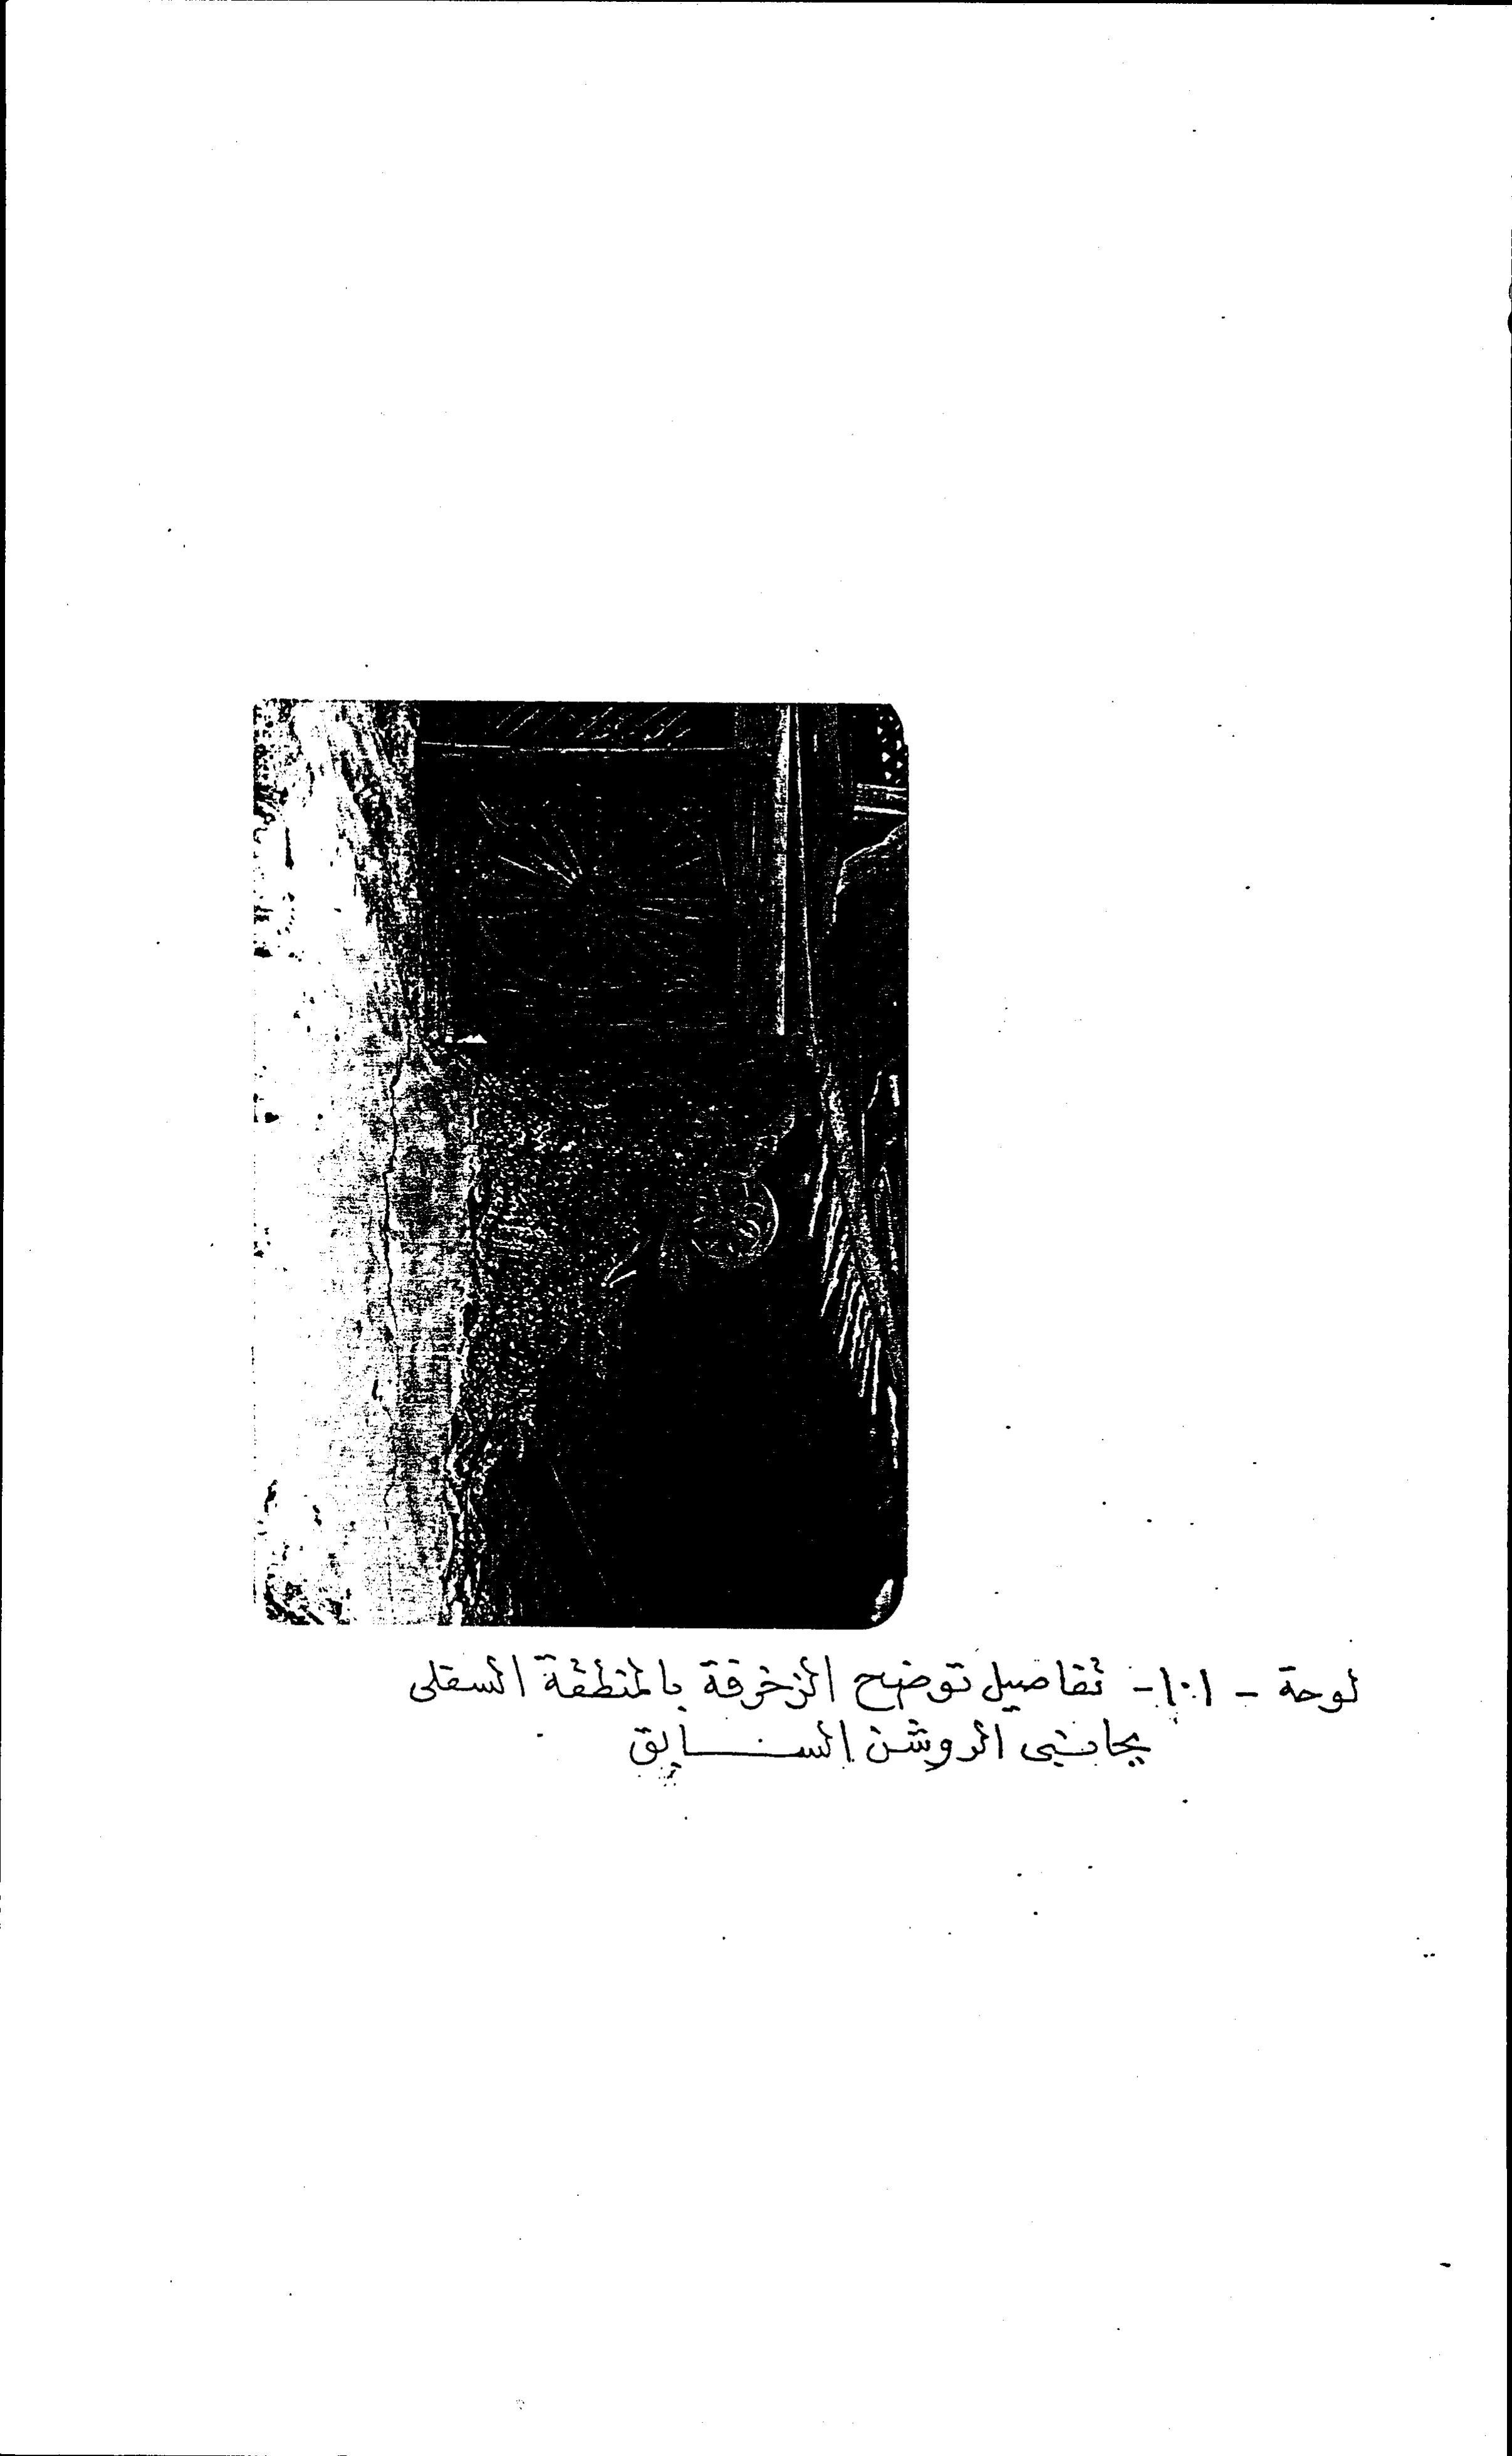 لوحة - ١٠١- تفاصيل توضح الزخرفة بالمنطقة السفلى
بجانبى الروشن السابق